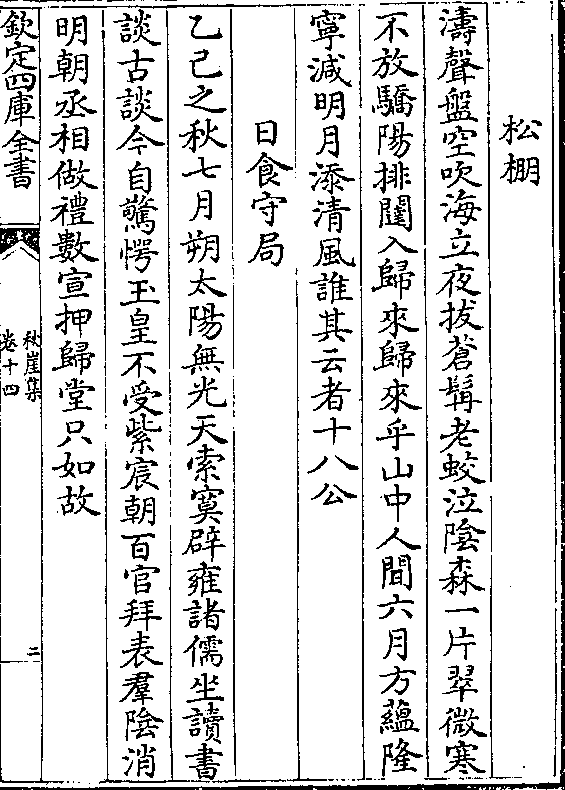 松棚
濤聲盤空吹海立夜拔蒼髯老蛟泣陰森一片翠微寒
不放驕陽排闥入歸來歸來乎山中人間六月方蘊隆
寧減明月添清風誰其云者十八公
日食守局
乙巳之秋七月朔太陽無光天索寞辟雍諸儒坐讀書
談古談今自驚愕玉皇不受紫宸朝百官拜表羣陰消
明朝丞相做禮數宣押歸堂只如故
欽定四庫全書
秋崖集
卷十四
二